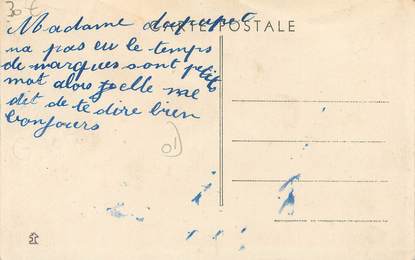 30 f
CARTE POSTALE
Madame dupupet
na pas eu le temps
de marques sont petits
mot alors elle me
dit de te dire bien
bonjours